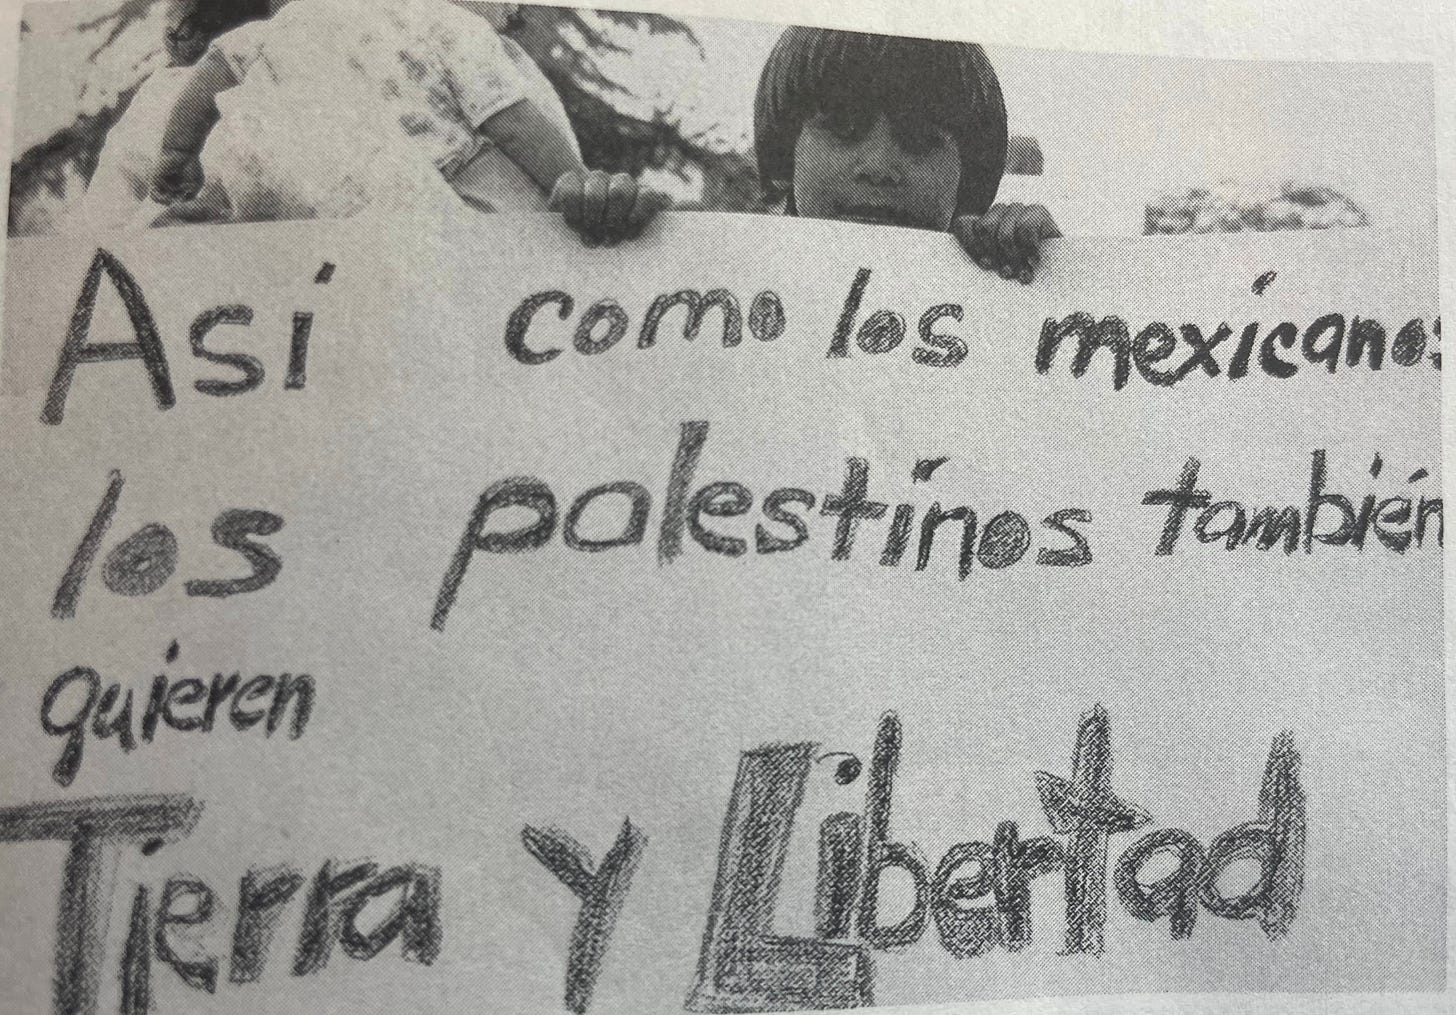 Así como los mexicanos
los palestinos también
quieren
Tierra y Libertad